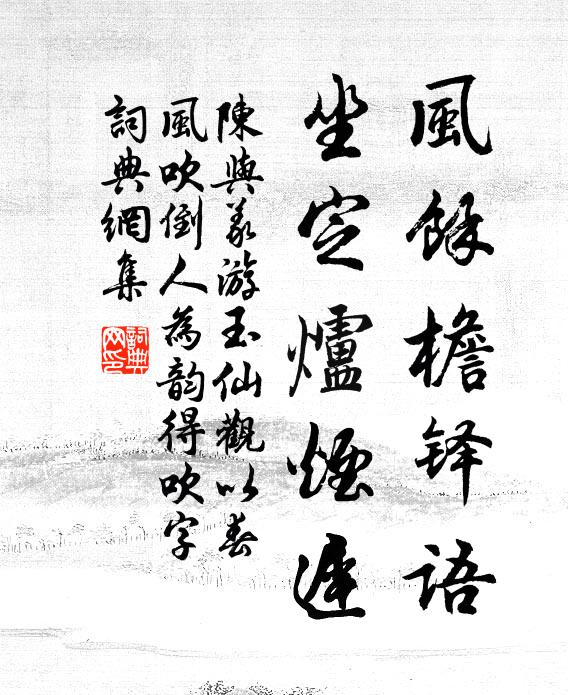 風餘檐铎語
坐定爐煙遲
陳與義游玉仙觀以春
風吹倒人為韵得吹字
詞典網集
詞典
网印